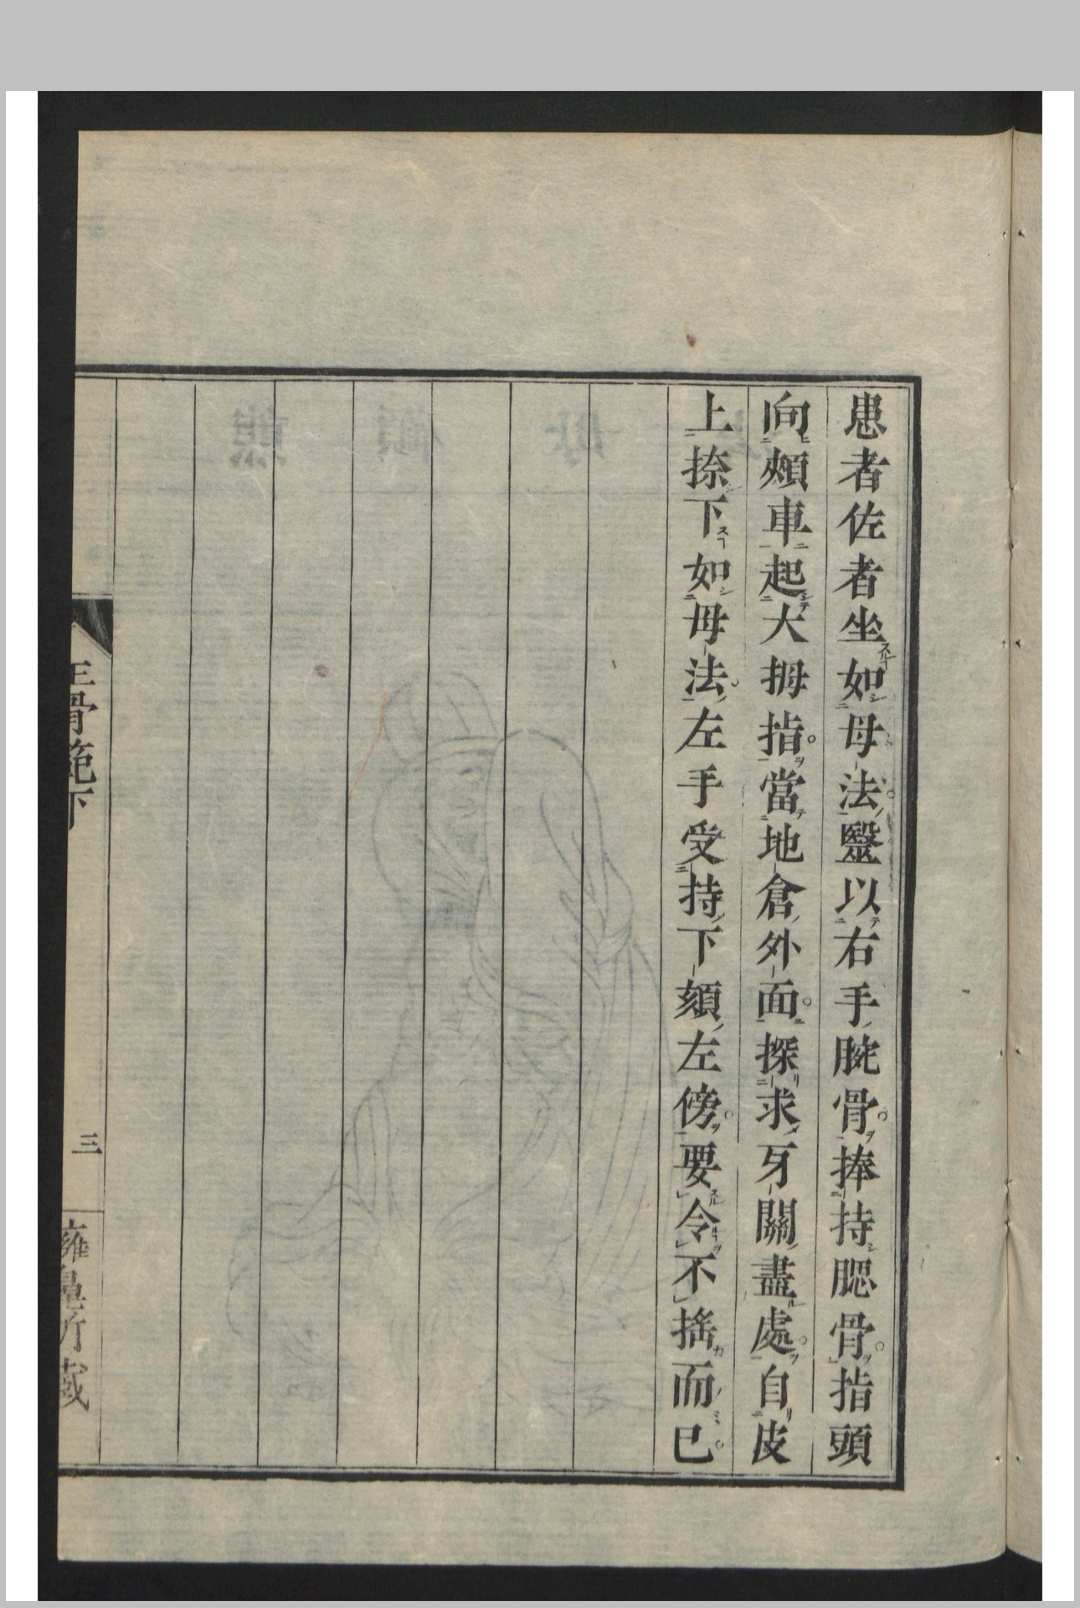 患者佐者坐如母法毉以右手腕骨捧持腮骨指頭
向頰車起大拇指當地倉外面探求牙關盡處自皮
上捺下如母法左手受持下頦左傍要令不搖而已
正骨範下
三